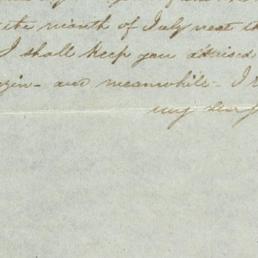 the month of July next
I shall keep you advised
and meanwhile - I
my dear